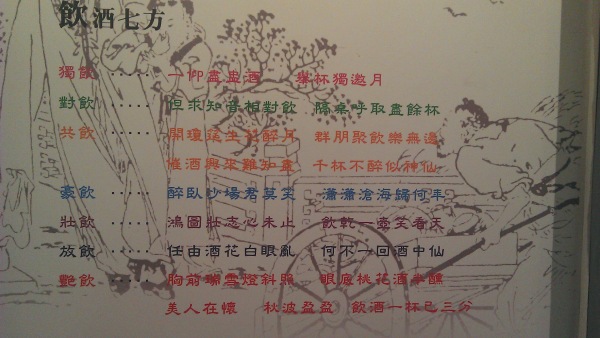 飲酒七方
獨飲 ······ 一仰盡盡酒 舉杯獨邀月
對飲 ······ 但求知音相對飲 隔桌呼取盡餘杯
共飲 ······ 開瓊筵坐花醉月 群朋聚飲樂無邊
催酒興來難知盡 千杯不醉似神仙
豪飲 ······ 醉臥沙場君莫笑 瀟瀟滄海歸何年
壯飲 ······ 鴻圖壯志心未止 飲乾一壺笑看天
放飲 ······ 任由酒花白眼亂 何不一回酒中仙
艷飲 ······ 胸前瑞雪燈斜照 眼底桃花酒半醺
美人在懷 秋波盈盈 飲酒一杯已三分